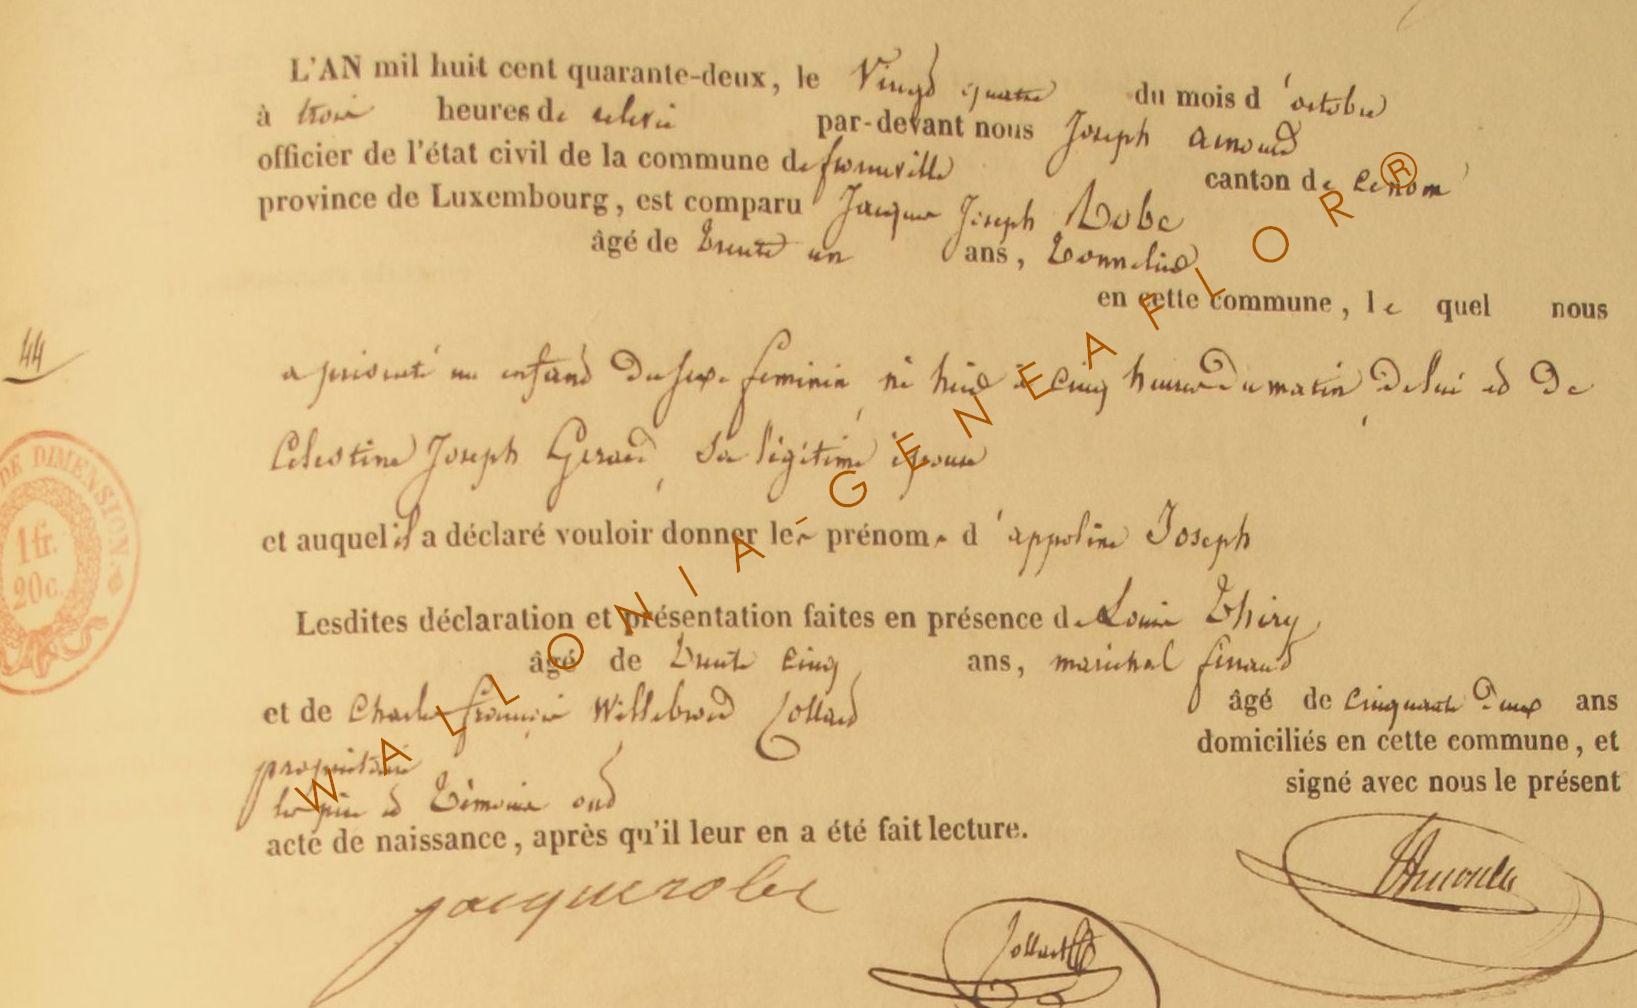 L'AN mil huit cent quarante-deux, le Vingt quatre du mois d'octobre
à trois heures de relevée par-devant nous Joseph Arnould
officier de l'état civil de la commune de
canton de
province de Luxembourg, est comparu Jacques Joseph Robe
âgé de trente un ans, tonnelier
en cette commune, le quel nous
44
a présenté un enfant du sexe feminin né hier à cinq heures du matin de lui et de
Celestine Joseph Gerard, sa légitime épouse
et auquel il a déclaré vouloir donner les prénoms d'appoline Joseph
DE DIMENSION.
1 fr.
20 c.
Lesdites déclaration et présentation faites en présence de Louis Thiry
âgé de trente cinq ans, maréchal ferrant
et de Charles françois Willebrord Collard âgé de cinquante deux ans
propriétaire domiciliés en cette commune, et
les père et témoins ont signé avec nous le présent
acte de naissance, après qu'il leur en a été fait lecture.
jacque robe
Collard
WALLONIA-GENEAFLOR®